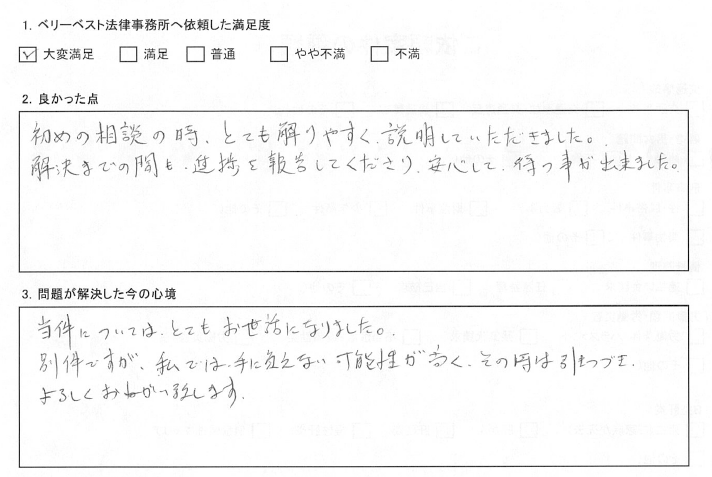 1. ベリーベスト法律事務所へ依頼した満足度
☑ 大変満足 □ 満足 □ 普通 □ やや不満 □ 不満
2. 良かった点
初めの相談の時、とても解りやすく、説明していただきました。
解決までの間も、進捗を報告してくださり、安心して、待つ事が出来ました。
3. 問題が解決した今の心境
当件については、とてもお世話になりました。
別件ですが、私では、手に負えない可能性が高く、その時は引きつづき、
よろしくおねがい致します。